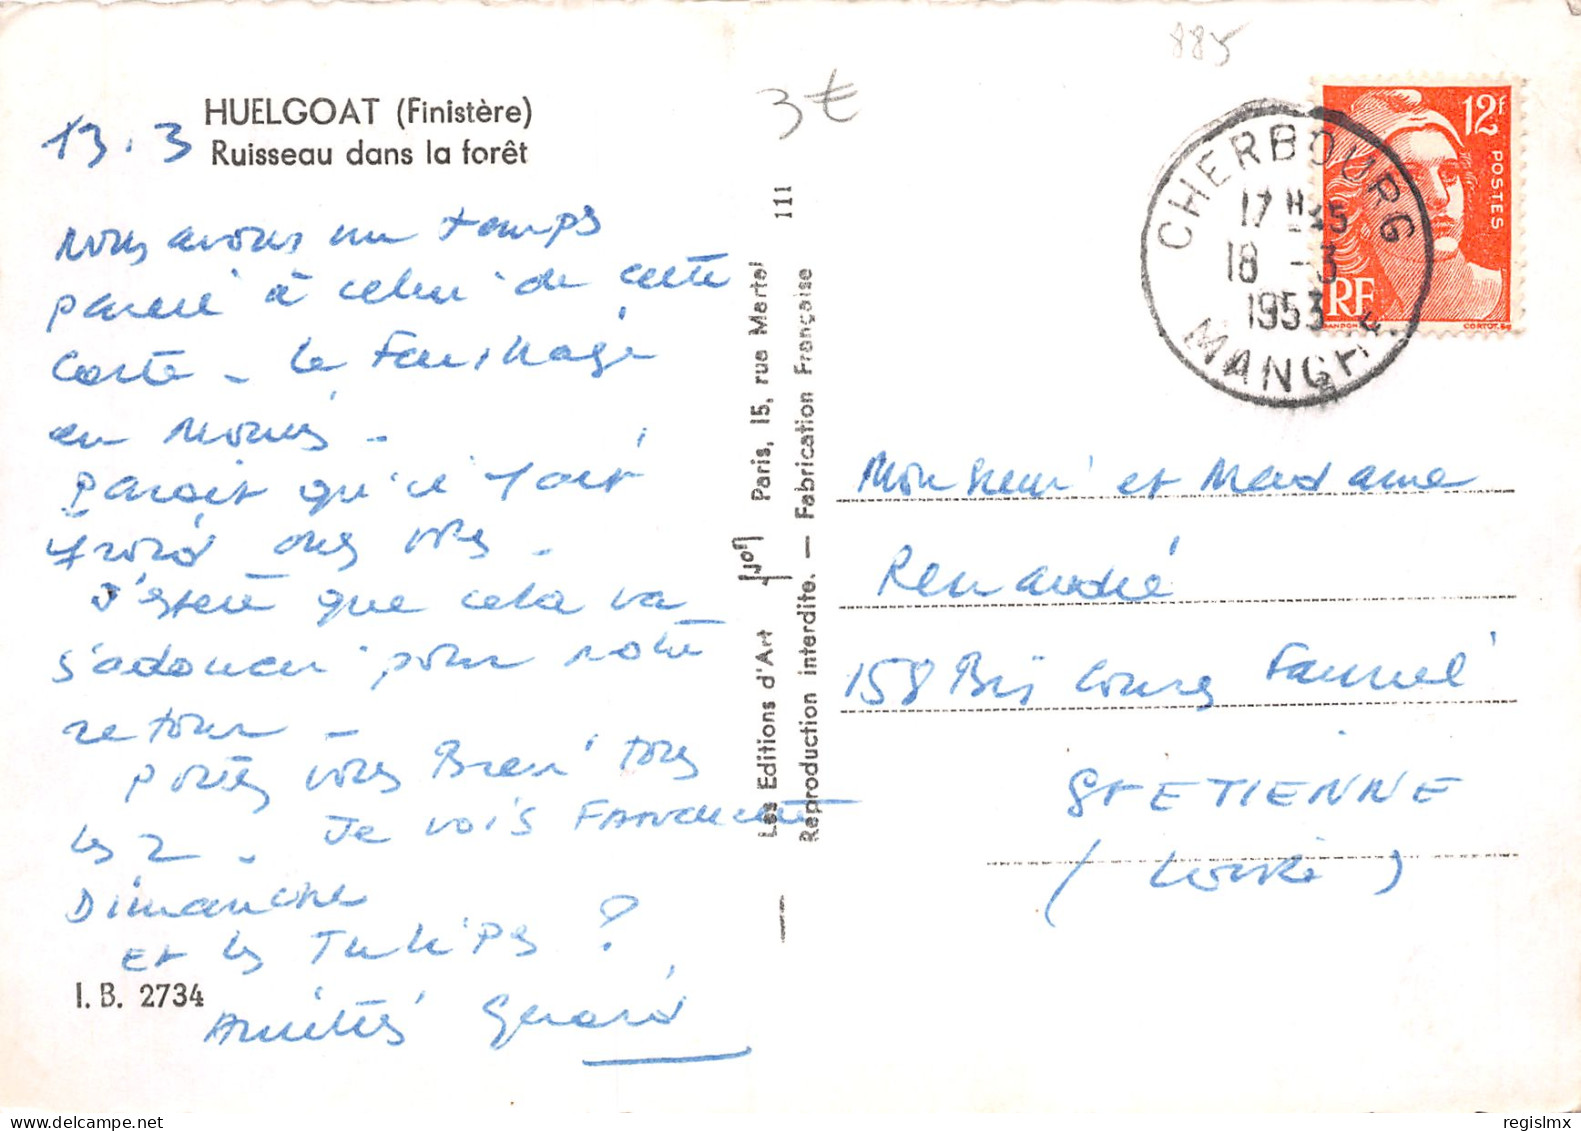 885
3€
HUELGOAT (Finistère)
Ruisseau dans la forêt
13.3
Nous avons un temps
pareil à celui de cette
carte - le
en moins -
Parait qu'il fait
froid chez vous -
J'espère que cela va
s'adoucir pour notre
retour -
Portez vous bien tous
les 2 - Je vois
Dimanche
et les Tulipes ?
Amitiés Gérard
I. B. 2734
Les Editions d'Art YVON Paris, 15, rue Martel 111
Reproduction interdite. — Fabrication Française
12F
POSTES
RF
GANDON
CORTOT.SC
CHERBOURG
17 H 45
18 -3
1953
MANCHE
Monsieur et Madame
158 Bis Cours Fauriel
ST ETIENNE
(Loire)
regislmx